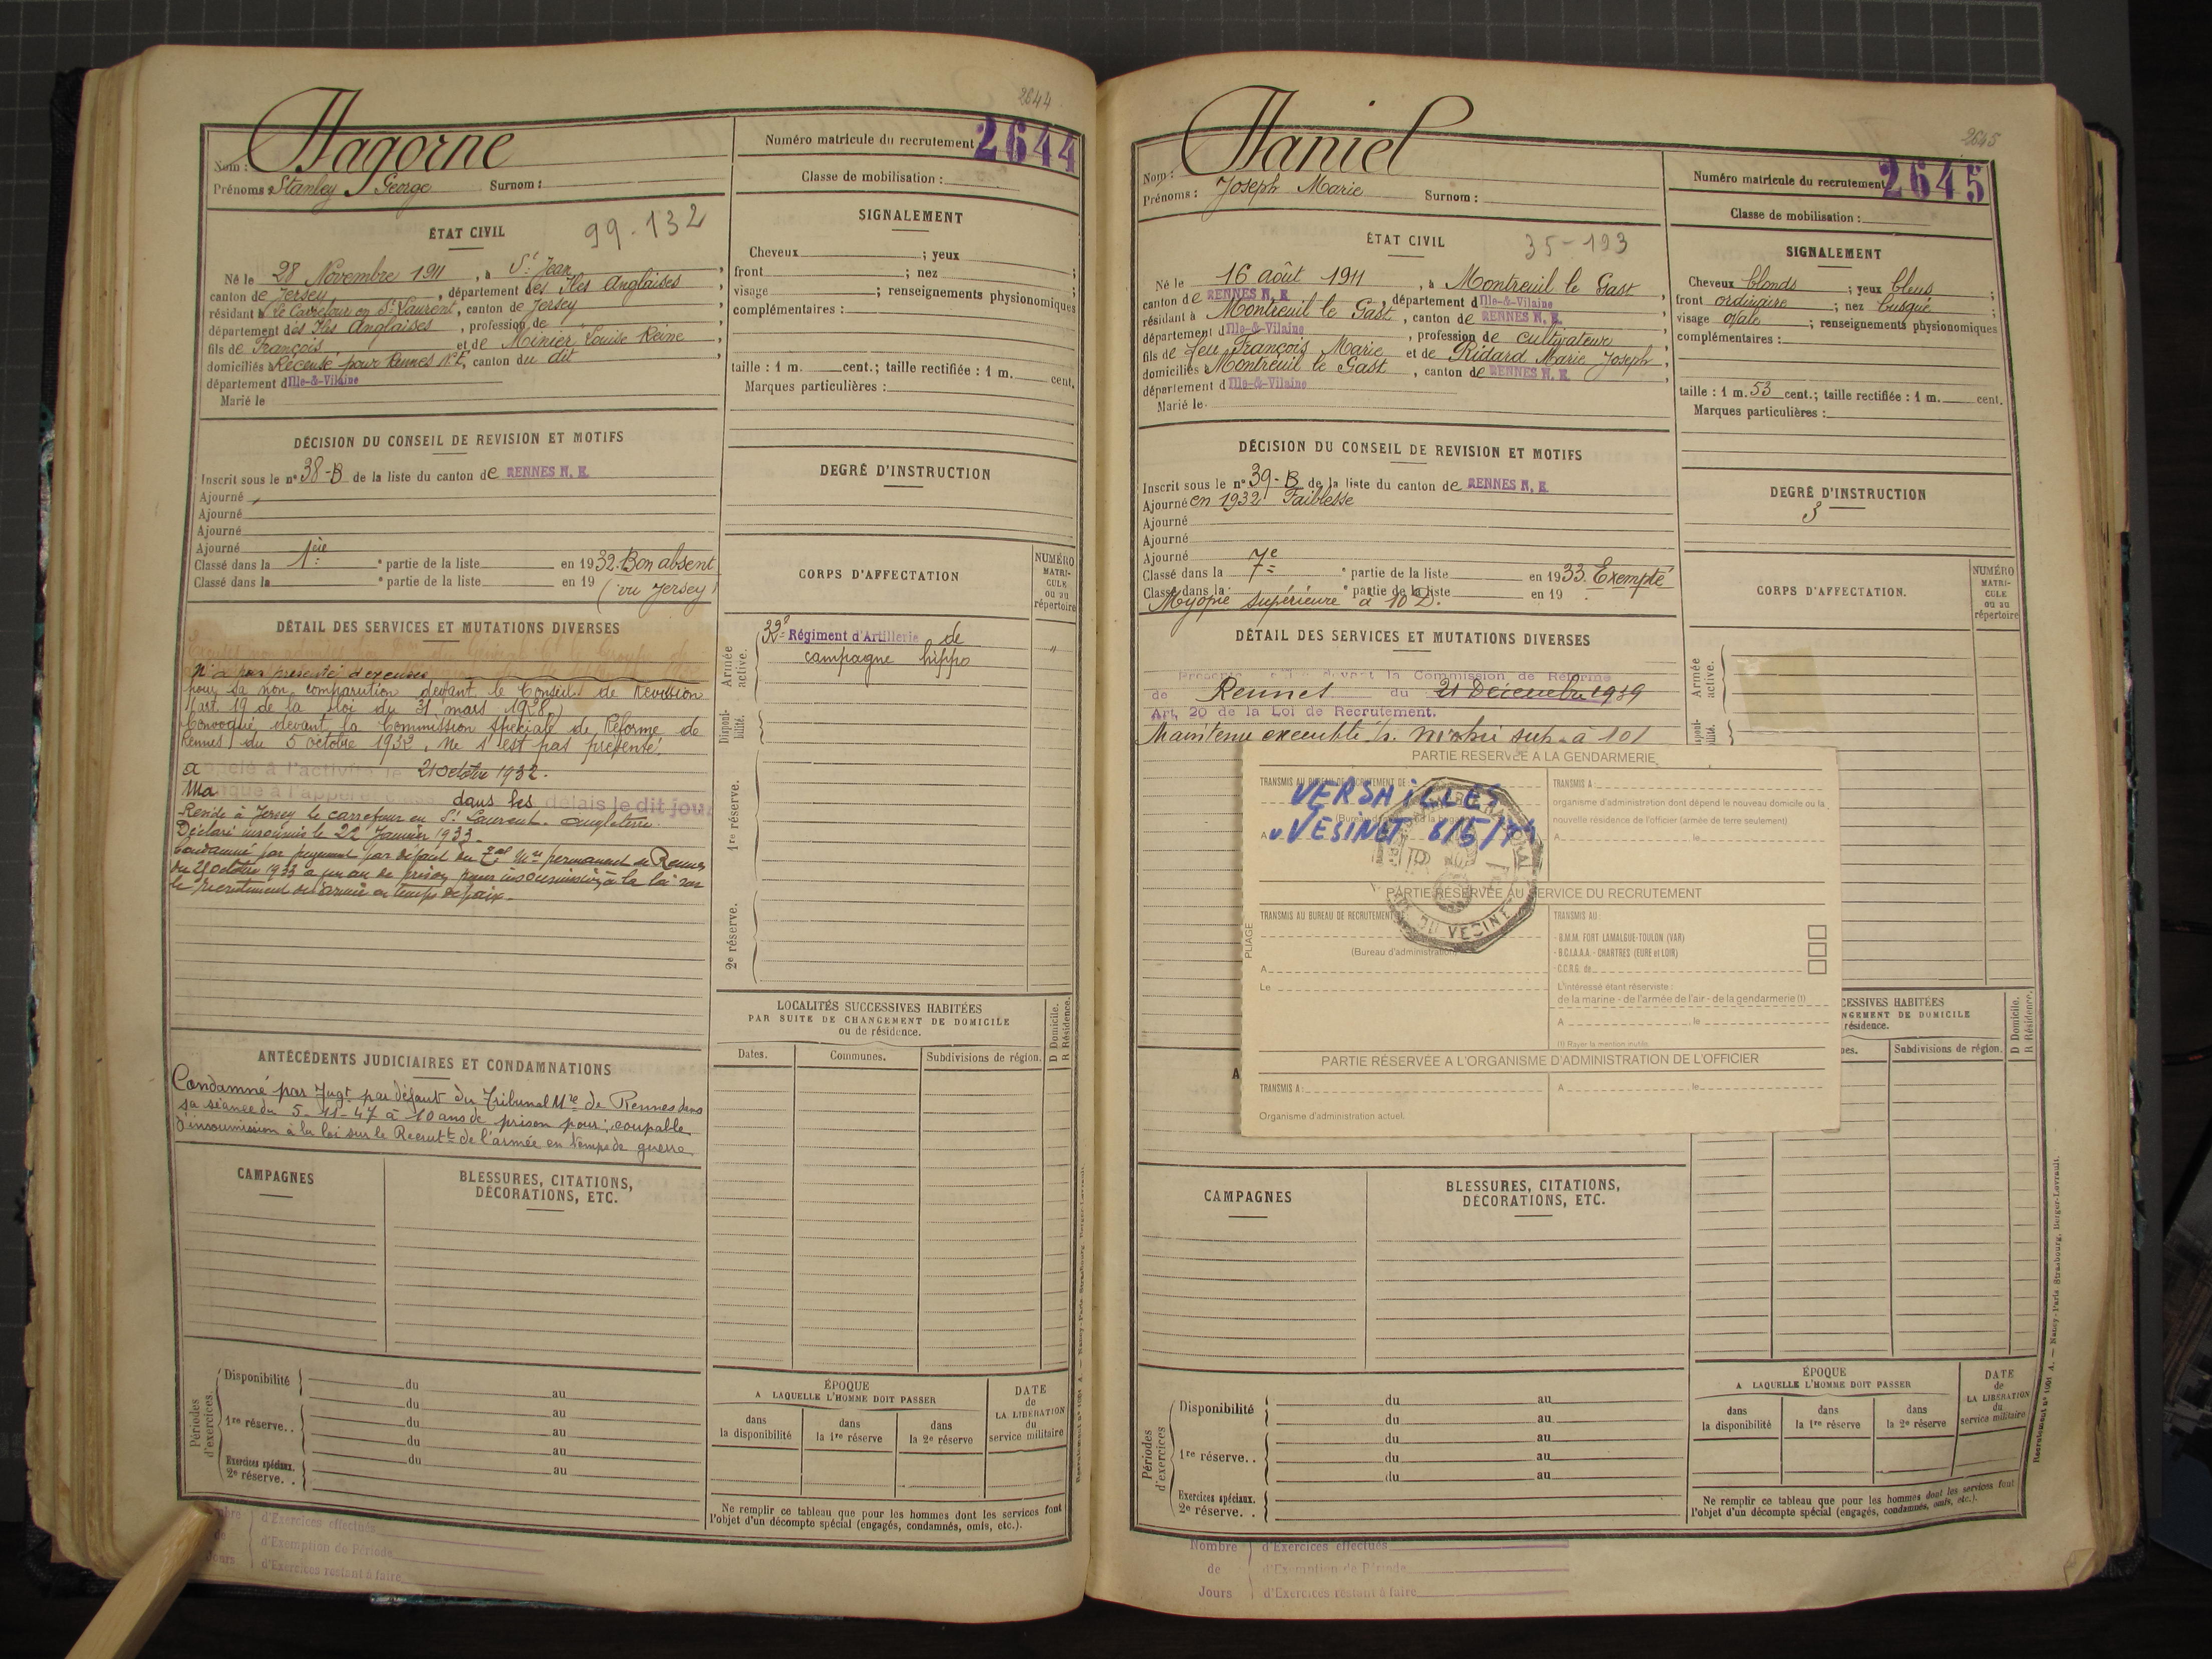 2644
Nom : Hagorne
Numéro matricule du recrutement 2644
Prénoms : Stanley George Surnom :
Classe de mobilisation :
ÉTAT CIVIL
99-132
Né le 28 Novembre 1911, à St Jean,
canton de Jersey, département des Iles Anglaises,
résidant à le Carrefour en St Laurent, canton de Jersey,
département des Iles Anglaises, profession de
fils de François et de Minier Louise Reine,
domiciliés Recensé pour Rennes N.E, canton du dit,
département d'Ille-&-Vilaine
Marié le
SIGNALEMENT
Cheveux ; yeux ;
front ; nez ;
visage ; renseignements physionomiques
complémentaires :
taille : 1 m. cent.; taille rectifiée : 1 m. cent.
Marques particulières :
DÉCISION DU CONSEIL DE REVISION ET MOTIFS
Inscrit sous le n° 38-B de la liste du canton de RENNES N. E.
Ajourné
Ajourné
Ajourné
Ajourné
Classé dans la 1ère partie de la liste en 1932. Bon absent
Classé dans la partie de la liste en 19 (vu Jersey)
DEGRÉ D'INSTRUCTION
CORPS D'AFFECTATION
NUMÉRO MATRICULE ou au répertoire
Armée active.
Régiment d'Artillerie de
campagne hippo
"
Disponibilité.
1re réserve.
2e réserve.
DÉTAIL DES SERVICES ET MUTATIONS DIVERSES
N'a pas présenté d'excuses
pour sa non comparution devant le Conseil de Révision
(art. 19 de la Loi du 31 mars 1928.)
Convoqué devant la Commission spéciale de Réforme de
Rennes du 5 octobre 1932, ne s'est pas présenté.
Appelé à l'activité le 21 octobre 1932.
Manqué à l'appel dans les délais le dit jour
Réside à Jersey le carrefour en St Laurent. Angleterre.
Déclaré insoumis le 22 Janvier 1933.
Condamné par jugement par défaut du Tal Mre permanent de Rennes
du 21 octobre 1933 à un an de prison pour insoumission à la loi sur
le recrutement de l'armée en temps de paix.
ANTÉCÉDENTS JUDICIAIRES ET CONDAMNATIONS
Condamné par Jugt par défaut du Tribunal Mre de Rennes dans
sa séance du 5-11-47 à 10 ans de prison pour : coupable
d'insoumission à la loi sur le Recrutt de l'armée en temps de guerre
LOCALITÉS SUCCESSIVES HABITÉES
PAR SUITE DE CHANGEMENT DE DOMICILE
ou de résidence.
D Domicile.
R Résidence.
Dates. Communes. Subdivisions de région.
CAMPAGNES
BLESSURES, CITATIONS,
DÉCORATIONS, ETC.
Périodes d'exercices.
Disponibilité du au
du au
1re réserve.. du au
du au
Exercices spéciaux. du au
2e réserve. .
ÉPOQUE
A LAQUELLE L'HOMME DOIT PASSER
dans la disponibilité
dans la 1re réserve
dans la 2e réserve
DATE de LA LIBÉRATION du service militaire
Ne remplir ce tableau que pour les hommes dont les services font
l'objet d'un décompte spécial (engagés, condamnés, omis, etc.).
Nombre d'Exercices effectués
de d'Exemption de Période
Jours d'Exercices restant à faire
2645
Nom : Haniel
Numéro matricule du recrutement 2645
Prénoms : Joseph Marie Surnom :
Classe de mobilisation :
ÉTAT CIVIL
35-193
Né le 16 août 1911, à Montreuil le Gast,
canton de RENNES N. E., département d'Ille-&-Vilaine,
résidant à Montreuil le Gast, canton de RENNES N. E.,
département d'Ille-&-Vilaine, profession de cultivateur,
fils de feu François Marie et de Ridard Marie Joseph,
domiciliés à Montreuil le Gast, canton de RENNES N. E.,
département d'Ille-&-Vilaine
Marié le
SIGNALEMENT
Cheveux blonds ; yeux bleus ;
front ordinaire ; nez busqué ;
visage ovale ; renseignements physionomiques
complémentaires :
taille : 1 m. 53 cent.; taille rectifiée : 1 m. cent.
Marques particulières :
DÉCISION DU CONSEIL DE REVISION ET MOTIFS
Inscrit sous le n° 39-B de la liste du canton de RENNES N. E.
Ajourné en 1932 Faiblesse
Ajourné
Ajourné
Ajourné
Classé dans la 7e partie de la liste en 1933. Exempté
Classé dans la partie de la liste en 19
Myopie supérieure à 10 D.
DEGRÉ D'INSTRUCTION
3
CORPS D'AFFECTATION.
NUMÉRO MATRICULE ou au répertoire
Armée active.
DÉTAIL DES SERVICES ET MUTATIONS DIVERSES
devant la Commission de Réforme
de Rennes du 21 Décembre 1939
Art. 20 de la Loi de Recrutement.
Maintenu exempté p. myopie sup. à 10
PARTIE RESERVÉE A LA GENDARMERIE
TRANSMIS AU BUREAU DE RECRUTEMENT DE :
VERSAILLES
A VESINET
TRANSMIS A :
organisme d'administration dont dépend le nouveau domicile ou la
nouvelle résidence de l'officier (armée de terre seulement)
A le
DU VESINET
PARTIE RÉSERVÉE AU SERVICE DU RECRUTEMENT
TRANSMIS AU BUREAU DE RECRUTEMENT
(Bureau d'administration)
A
Le
PLIAGE
TRANSMIS AU :
- B.M.M. FORT LAMALGUE-TOULON (VAR)
- B.C.I.A.A.A. - CHARTRES (EURE et LOIR)
- C.C.R.G. de
L'intéressé étant réserviste :
de la marine - de l'armée de l'air - de la gendarmerie (1)
A le
(1) Rayer la mention inutile.
PARTIE RÉSERVÉE A L'ORGANISME D'ADMINISTRATION DE L'OFFICIER
TRANSMIS A :
A le
Organisme d'administration actuel.
A
CESSIVES HABITÉES
NGEMENT DE DOMICILE
résidence.
nes. Subdivisions de région.
D Domicile.
R Résidence.
CAMPAGNES
BLESSURES, CITATIONS,
DÉCORATIONS, ETC.
Périodes d'exercices
Disponibilité du au
du au
du au
1re réserve. . du au
du au
Exercices spéciaux.
2e réserve. .
ÉPOQUE
A LAQUELLE L'HOMME DOIT PASSER
dans la disponibilité
dans la 1re réserve
dans la 2e réserve
DATE de LA LIBÉRATION du service militaire
Ne remplir ce tableau que pour les hommes dont les services font
l'objet d'un décompte spécial (engagés, condamnés, omis, etc.).
Nombre d'Exercices effectués
de d'Exemption de Période
Jours d'Exercices restant à faire
Recrutement n° 1091 A. — Nancy-Paris-Strasbourg, Berger-Levrault.